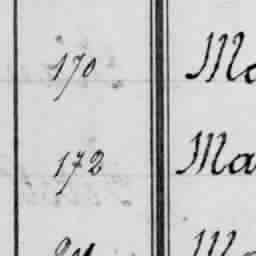 170 Ma
172 Ma